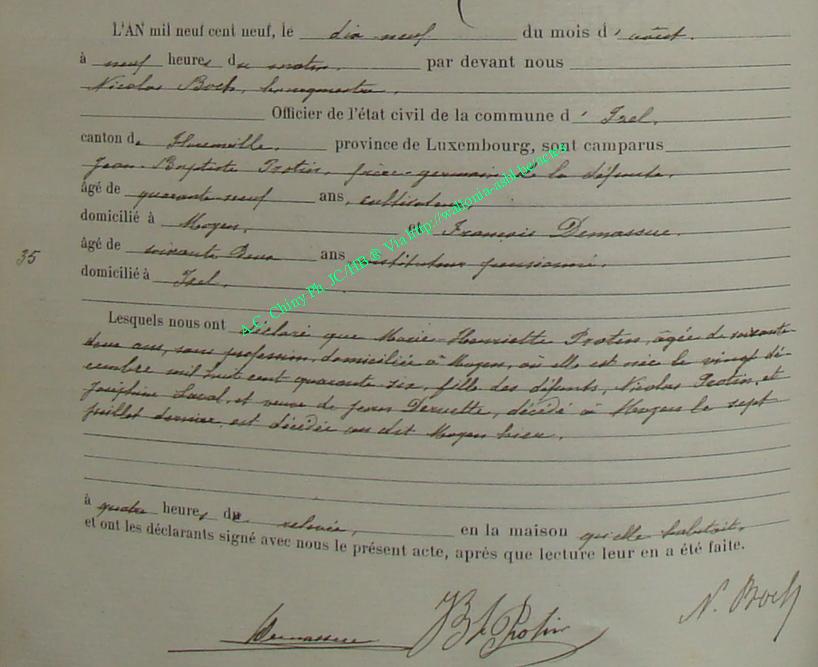 L'AN mil neuf cent neuf, le dix neuf du mois d'août.
à neuf heures du matin. par devant nous
Nicolas Boch, bourgmestre,
Officier de l'état civil de la commune d'Izel,
canton de Florenville, province de Luxembourg, sont camparus
Jean-Baptiste Protin, frère germain de la défunte,
âgé de quarante neuf ans, cultivateur
domicilié à Moyen, et François Demassue.
âgé de soixante deux ans instituteur pensionné.
35
domicilié à Izel.
Lesquels nous ont déclaré que Marie-Henriette Protin, âgée de soixante
deux ans, sans profession, domiciliée à Moyen, où elle est née le vingt dé-
cembre mil huit cent quarante six, fille des défunts, Nicolas Protin, et
Joséphine Laval, et veuve de Jean Deruette, décédé à Moyen le sept
juillet dernier, est décédée au dit Moyen hier.
à quatre heures du relevée, en la maison qu'elle habitait.
et ont les déclarants signé avec nous le présent acte, après que lecture leur en a été faite.
Demassue JBt Protin N. Boch
A.C. Chiny Ph. JC/HB ® Via http://wallonia-asbl.be/actes